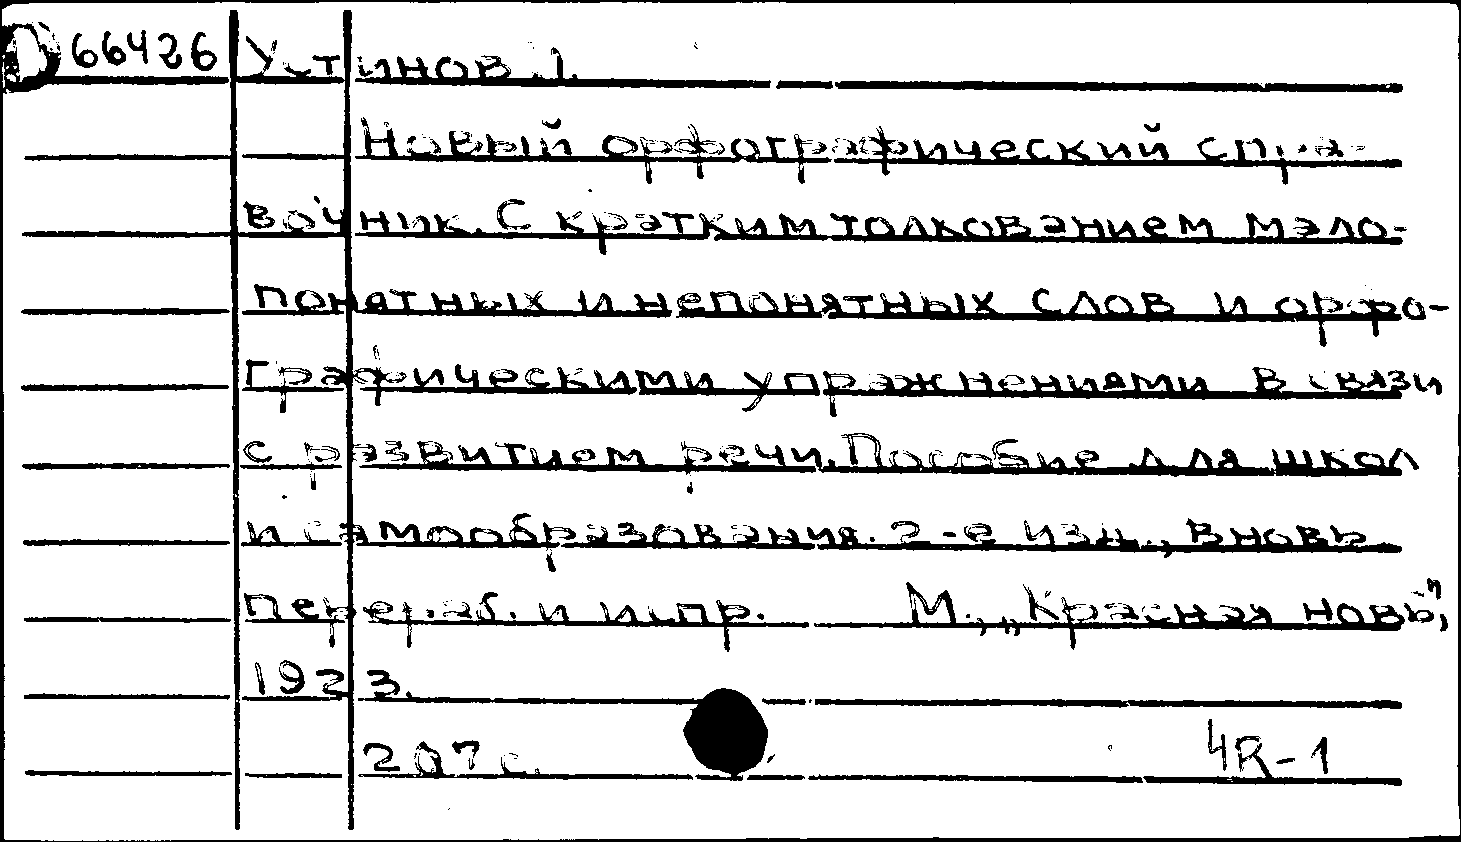 66426 Устинов I.
Новый орфографический спра-
вочник. С кратким толкованием мало-
понятных и непонятных слов и орфо-
графическими упражнениями в связи
с развитием речи. Пособие для школ
и самообразования. 2-е изд., вновь
перераб. и испр. М., „Красная новь",
1923.
207 с. 4R-1